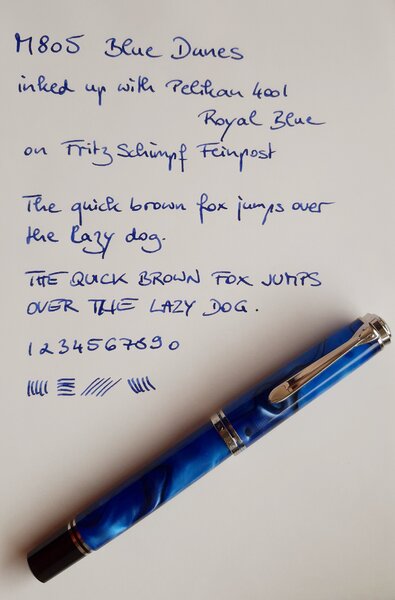 M805 Blue Dunes
inked up with Pelikan 4001
Royal Blue
on Fritz Schimpf Feinpost
The quick brown fox jumps over
the lazy dog.
THE QUICK BROWN FOX JUMPS
OVER THE LAZY DOG.
1234567890